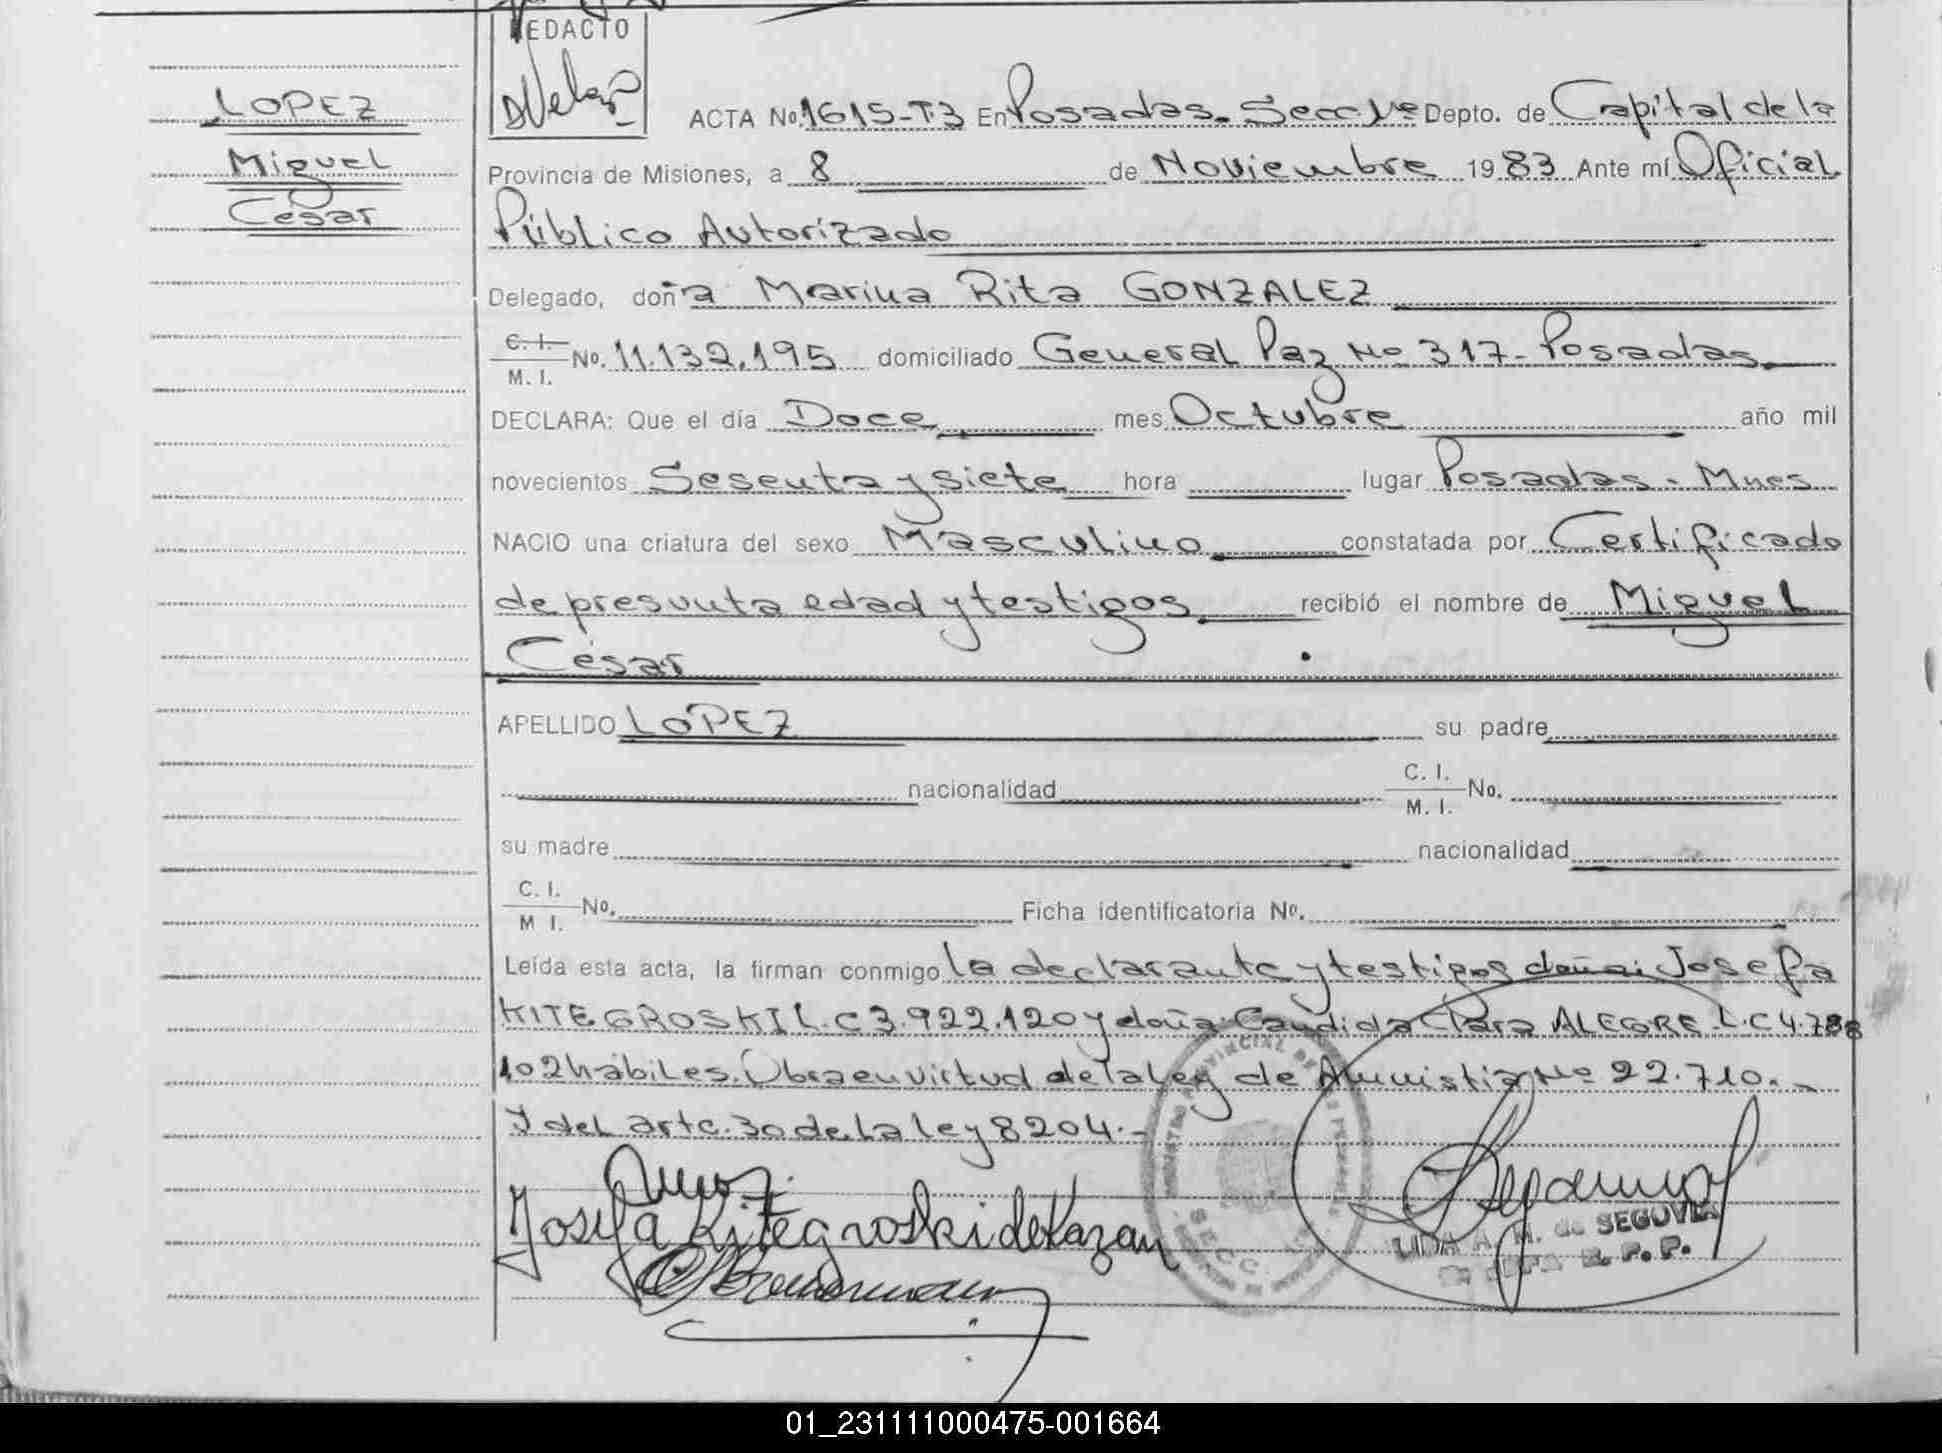 REDACTO
LOPEZ
Miguel
César
ACTA No. 1615-T3 En Posadas. Secc 1ra Depto. de Capital de la
Provincia de Misiones, a 8 de Noviembre 1983 Ante mí Oficial
Público Autorizado
Delegado, doña Marina Rita GONZALEZ
C. I.
M. I. No. 11.132.195 domiciliado General Paz No 317 - Posadas
DECLARA: Que el día Doce mes Octubre año mil
novecientos Sesenta y siete hora lugar Posadas - Mnes
NACIO una criatura del sexo Masculino constatada por Certificado
de presunta edad y testigos recibió el nombre de Miguel
César
APELLIDO LOPEZ su padre
nacionalidad C. I. M. I. No.
su madre nacionalidad
C. I. M. I. No. Ficha identificatoria No.
Leída esta acta, la firman conmigo la declarante y testigos doña: Josefa
KITEGROSKI L.C 3.922.120 y doña: Candida Clara ALEGRE - L.C 4.788
102 hábiles. Obra en virtud de la ley de Amnistia No 22.710.-
Y del artc. 30 de la ley 8204.-
Josefa Kitegroski de Kazan
LIDIA A. M. de SEGOVIA
R. P. P.
SECC.
01_231111000475-001664